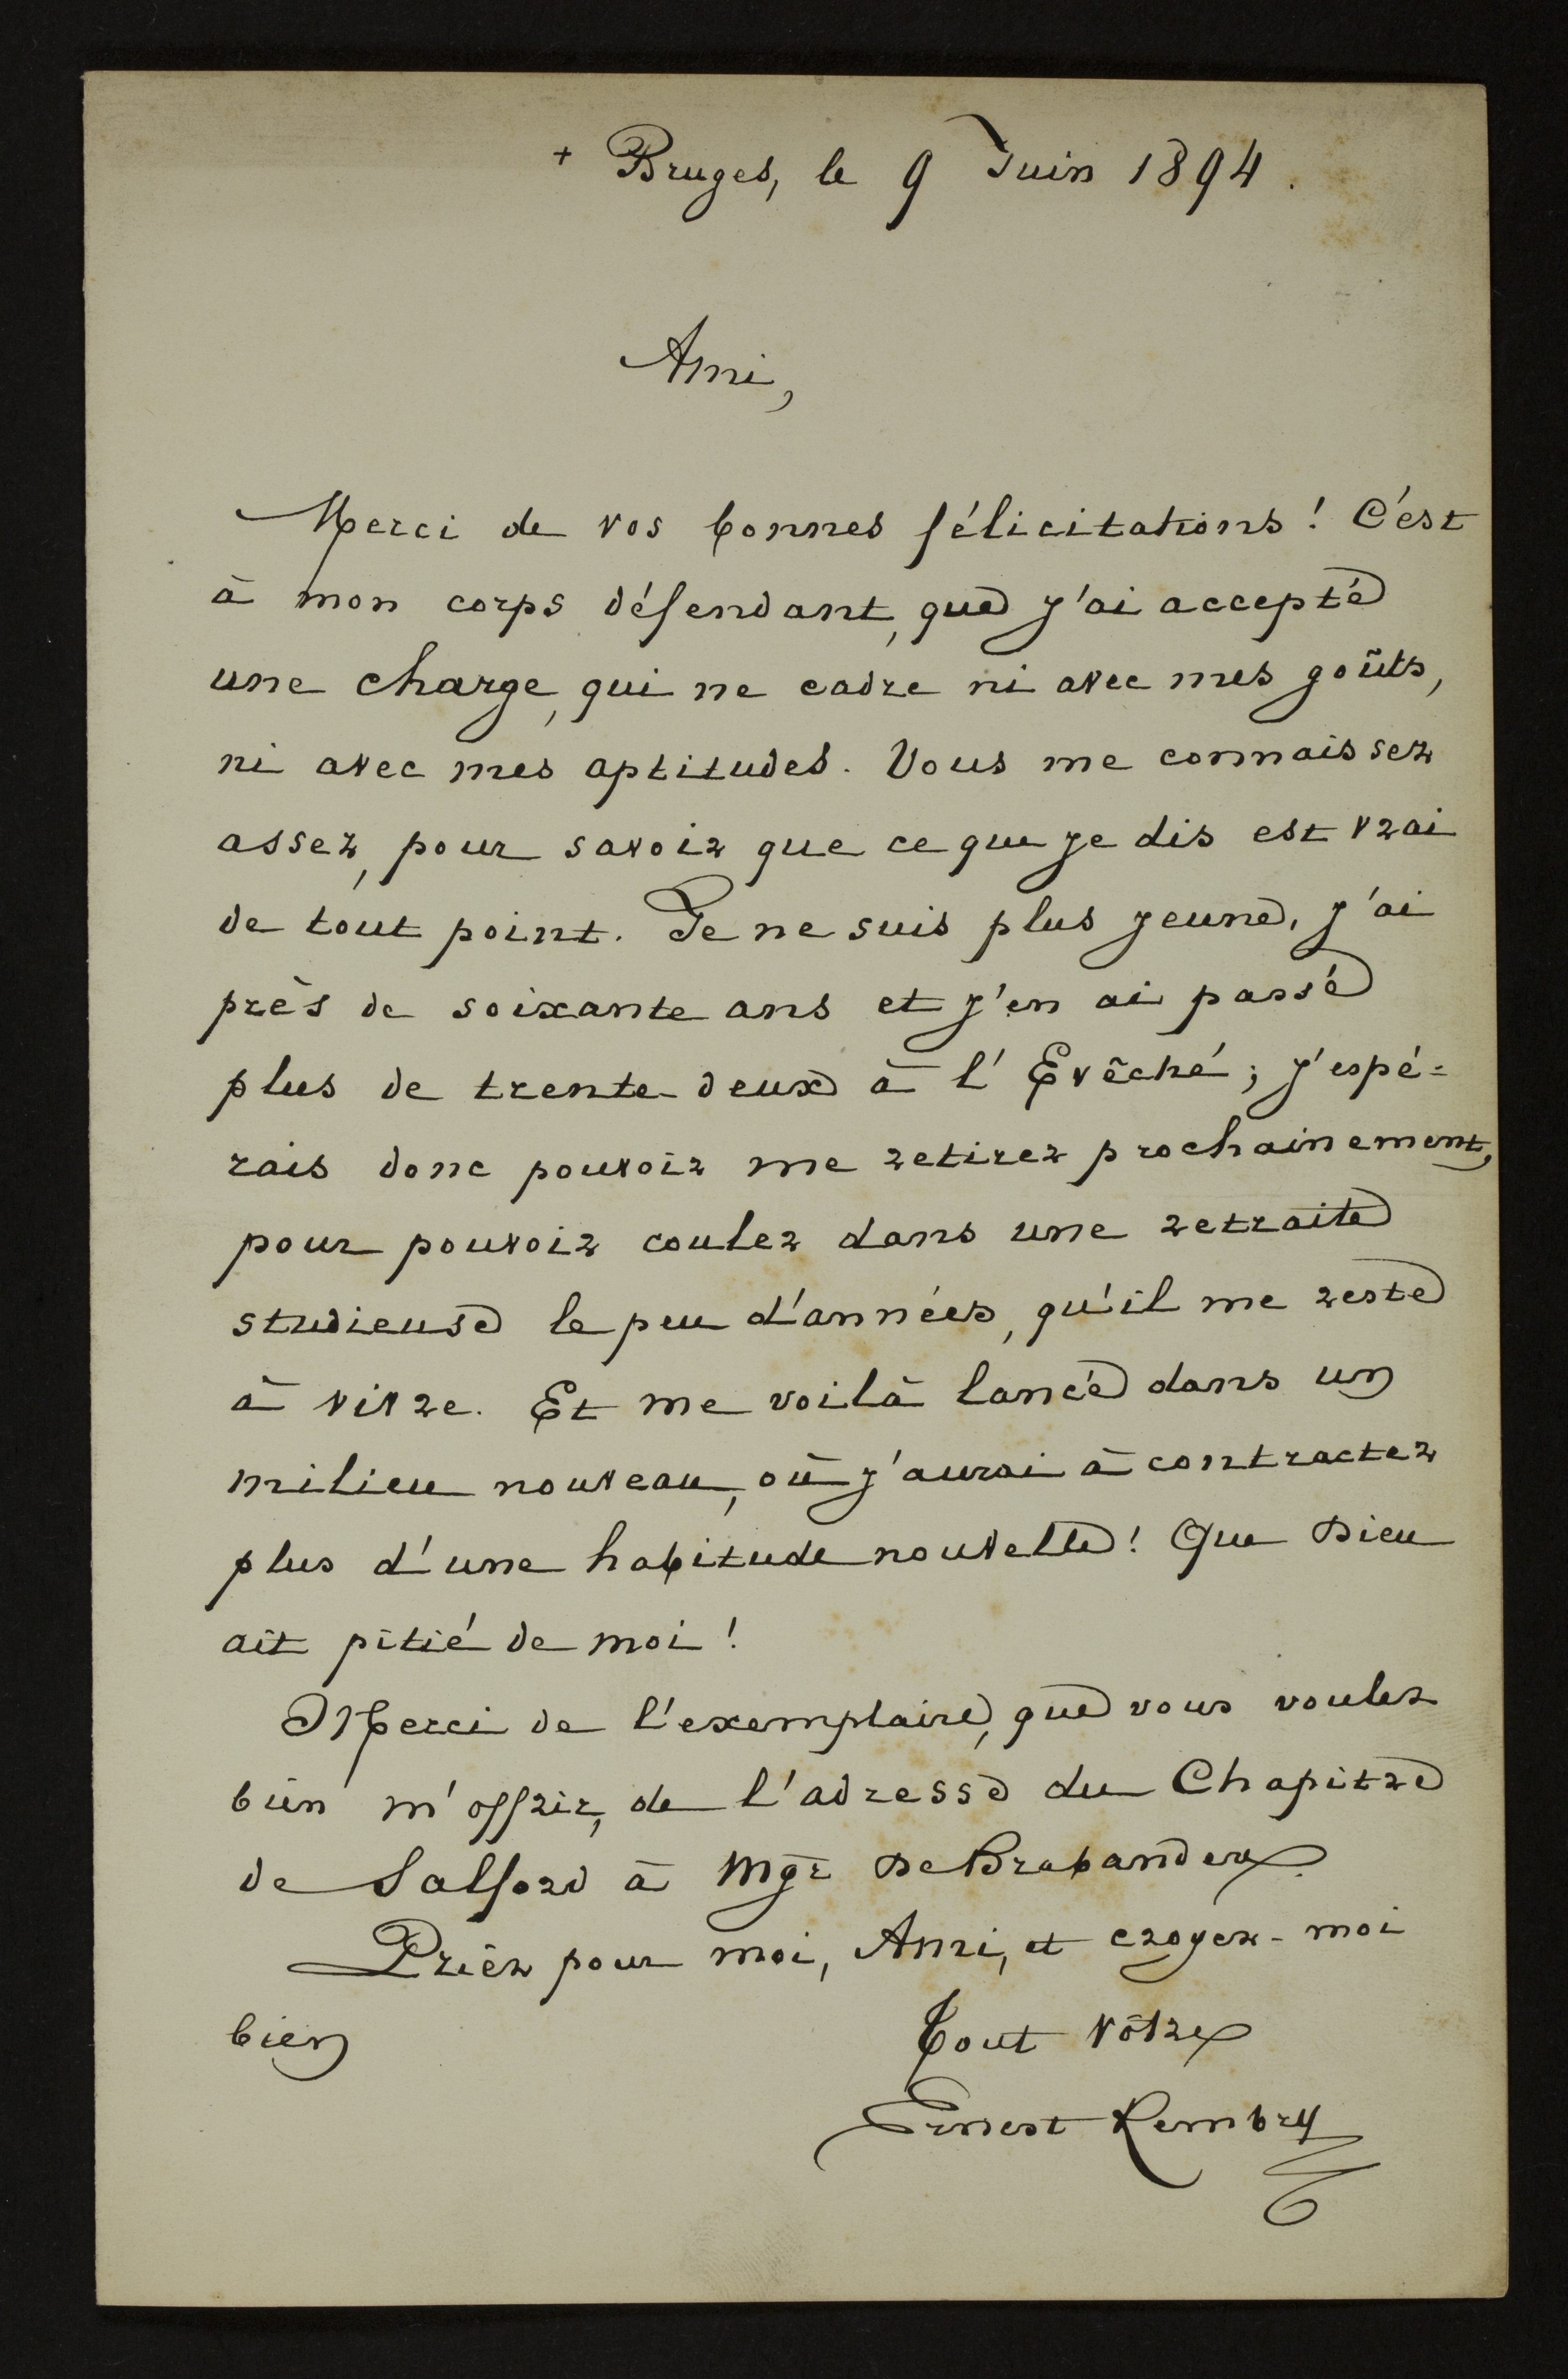 + Bruges, le 9 Juin 1894.
Ami,
Merci de vos bonnes félicitations! C'est
à mon corps défendant, que j'ai accepté
une charge, qui ne cadre ni avec mes goûts,
ni avec mes aptitudes. Vous me connaissez
assez, pour savoir que ce que je dis est vrai
de tout point. Je ne suis plus jeune, j'ai
près de soixante ans et j'en ai passé
plus de trente-deux à l'Evêché; j'espé=
rais donc pouvoir me retirer prochainement,
pour pouvoir couler dans une retraite
studieuse le peu d'années, qu'il me reste
à vivre. Et me voilà lancé dans un
milieu nouveau, où j'aurai à contracter
plus d'une habitude nouvelle! Que Dieu
ait pitié de moi!
Merci de l'exemplaire, que vous voulez
bien m'offrir, de l'adresse du Chapitre
de Salford à Mgr De Brabandere.
Priez pour moi, Ami, et croyez-moi
bien
Tout vôtre
Ernest Rembry